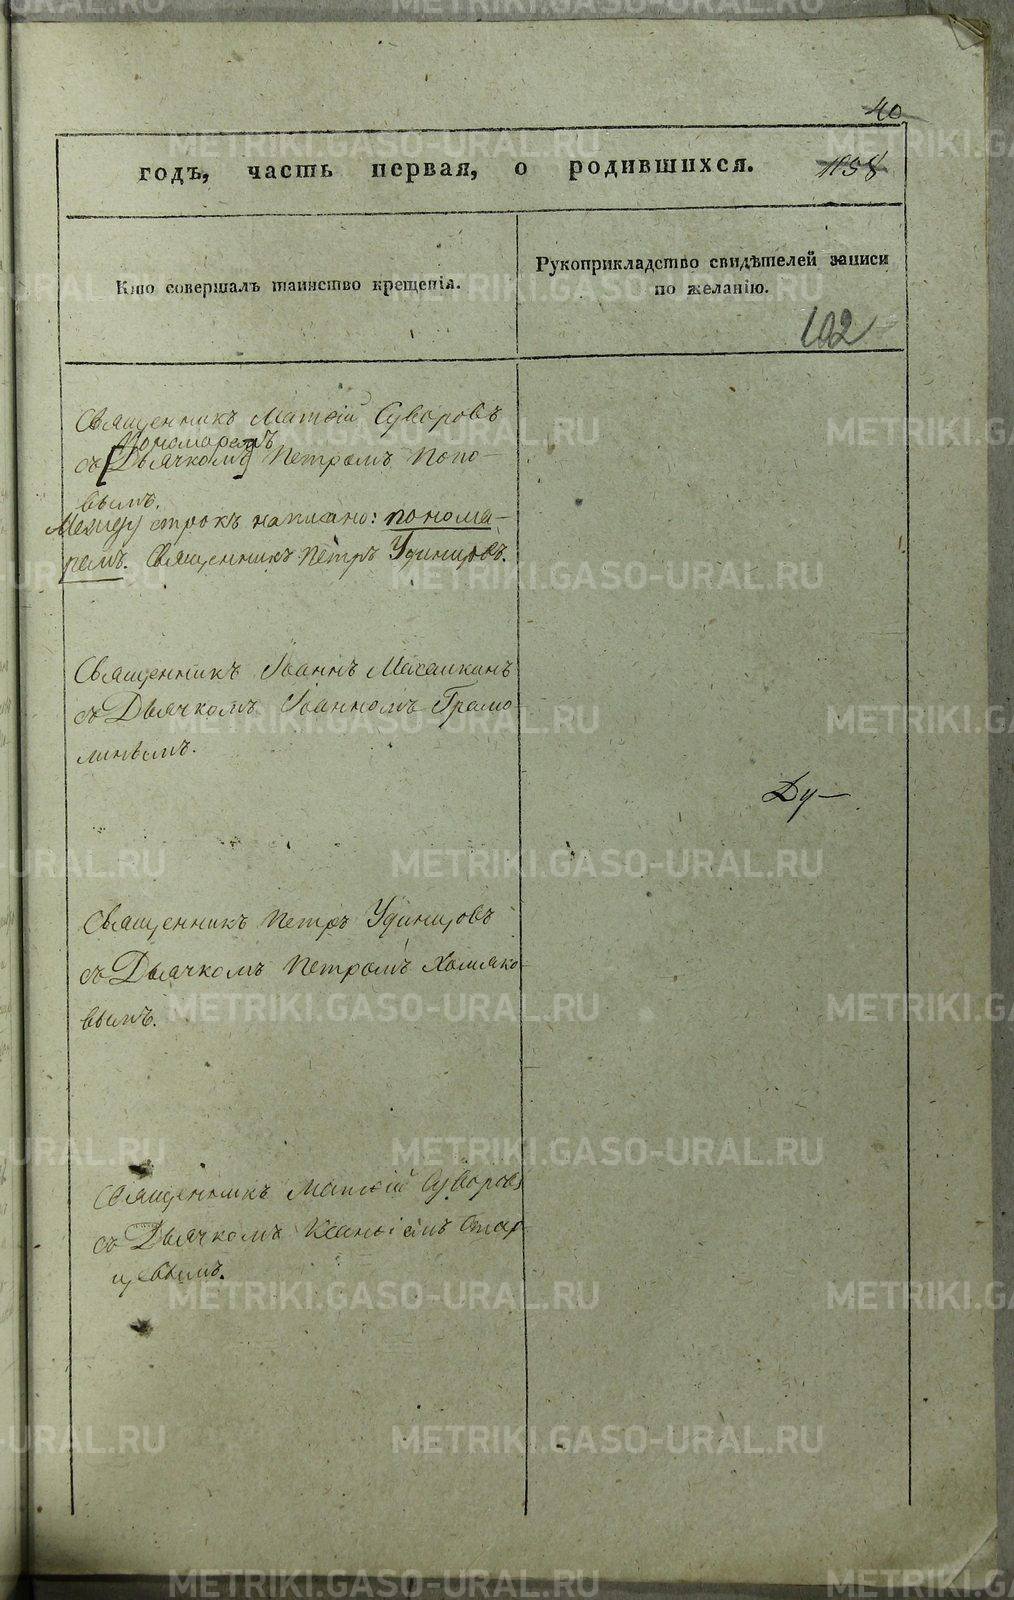 40
годъ, часть первая, о родившихся.
1058
Кто совершалъ таинство крещенія.
Рукоприкладство свидѣтелей записи
по желанію.
102
Священникъ Матѳій Суворовъ
Пономаремъ
съ [Дьячкомъ] Петромъ Попо-
вымъ.
Между строкъ написано: понома-
ремъ. Священникъ Петръ Удинцовъ.
Священникъ Іоаннъ Махалкинъ
съ Дьячкомъ Іоанномъ Грамо-
линымъ.
Ду-
Священникъ Петръ Удинцовъ
съ Дьячкомъ Петромъ Хомяко-
вымъ.
Священникъ Матѳій Суворовъ
съ Дьячкомъ Ксанѳіемъ Стар-
цовымъ.
METRIKI.GASO-URAL.RU